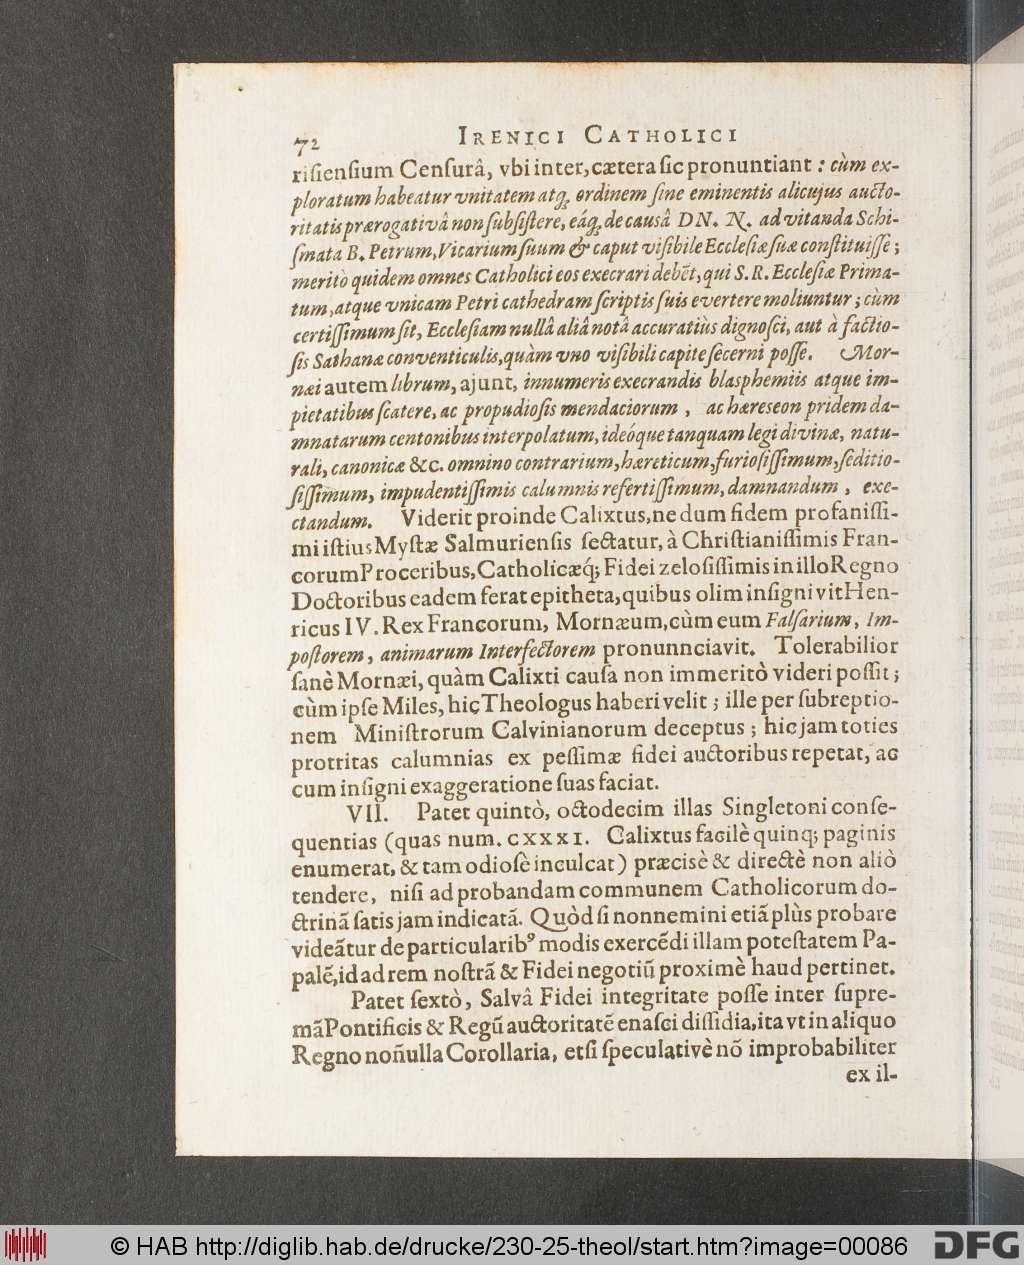 72 IRENICI CATHOLICI
riſienſium Cenſurâ, vbi inter, cætera ſic pronuntiant : cùm ex-
ploratum habeatur vnitatem atq; ordinem ſine eminentis alicujus aucto-
ritatis prærogativâ non ſubſiſtere, eáq; de causâ DN. N. ad vitanda Schi-
ſmata B. Petrum, Vicarium ſuum & caput viſibile Eccleſiæ ſuæ conſtituiſſe ;
meritò quidem omnes Catholici eos execrari debẽt, qui S. R. Eccleſiæ Prima-
tum, atque vnicam Petri cathedram ſcriptis ſuis evertere moliuntur ; cùm
certiſſimum ſit, Eccleſiam nullâ aliâ notâ accuratiùs dignoſci, aut à factio-
ſis Sathanæ conventiculis, quàm vno viſibili capite ſecerni poſſe. Mor-
næi autem librum, ajunt, innumeris execrandis blasphemiis atque im-
pietatibus ſcatere, ac propudioſis mendaciorum , ac hæreseon pridem da-
mnatarum centonibus interpolatum, ideóque tanquam legi divinæ, natu-
rali, canonicæ &c. omnino contrarium, hæreticum, furioſiſſimum, ſeditio-
ſiſſimum, impudentiſſimis calumnis refertiſſimum, damnandum , exe-
ctandum. Viderit proinde Calixtus, ne dum fidem profaniſſi-
mi iſtius Myſtæ Salmurienſis ſectatur, à Chriſtianiſſimis Fran-
corum Proceribus, Catholicæq́; Fidei zeloſiſſimis in illo Regno
Doctoribus eadem ferat epitheta, quibus olim inſignivit Hen-
ricus IV. Rex Francorum, Mornæum, cùm eum Falſarium, Im-
poſtorem, animarum Interfectorem pronunnciavit. Tolerabilior
ſanè Mornæi, quàm Calixti cauſa non immeritò videri poſſit ;
cùm ipſe Miles, hic Theologus haberi velit ; ille per ſubreptio-
nem Miniſtrorum Calvinianorum deceptus ; hic jam toties
protritas calumnias ex peſſimæ fidei auctoribus repetat, ac
cum inſigni exaggeratione ſuas faciat.
VII. Patet quintò, octodecim illas Singletoni conſe-
quentias (quas num. CXXXI. Calixtus facilè quinq; paginis
enumerat, & tam odioſè inculcat) præcisè & directè non aliò
tendere, niſi ad probandam communem Catholicorum do-
ctrinã ſatis jam indicatã. Quòd ſi nonnemini etiã plùs probare
videãtur de particularibꝰ modis exercẽdi illam poteſtatem Pa-
palẽ, id ad rem noſtrã & Fidei negotiũ proximè haud pertinet.
Patet ſextò, Salvâ Fidei integritate poſſe inter ſupre-
mã Pontificis & Regũ auctoritatẽ enaſci diſſidia, ita vt in aliquo
Regno noñulla Corollaria, etſi ſpeculativè nõ improbabiliter
ex il-
© HAB http://diglib.hab.de/drucke/230-25-theol/start.htm?image=00086 DFG